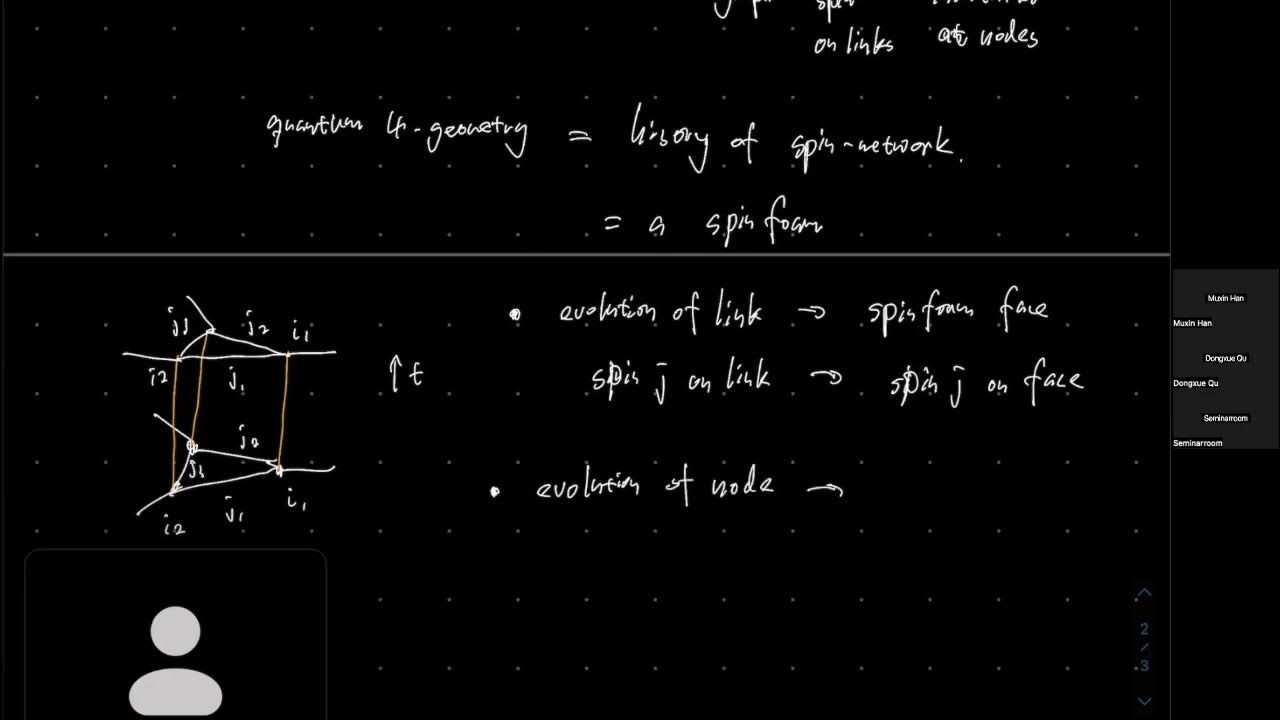 on links at nodes
quantum 4-geometry = hisory of spin-network.
= a spin foam
j3 j2 i1
i2 j1
↑ t
j2
j3
j1 i1
i2
• evolution of link → spinfoam face
spin j on link → spin j on face
• evolution of node →
Muxin Han
Muxin Han
Dongxue Qu
Dongxue Qu
Seminarroom
Seminarroom
2
/
3